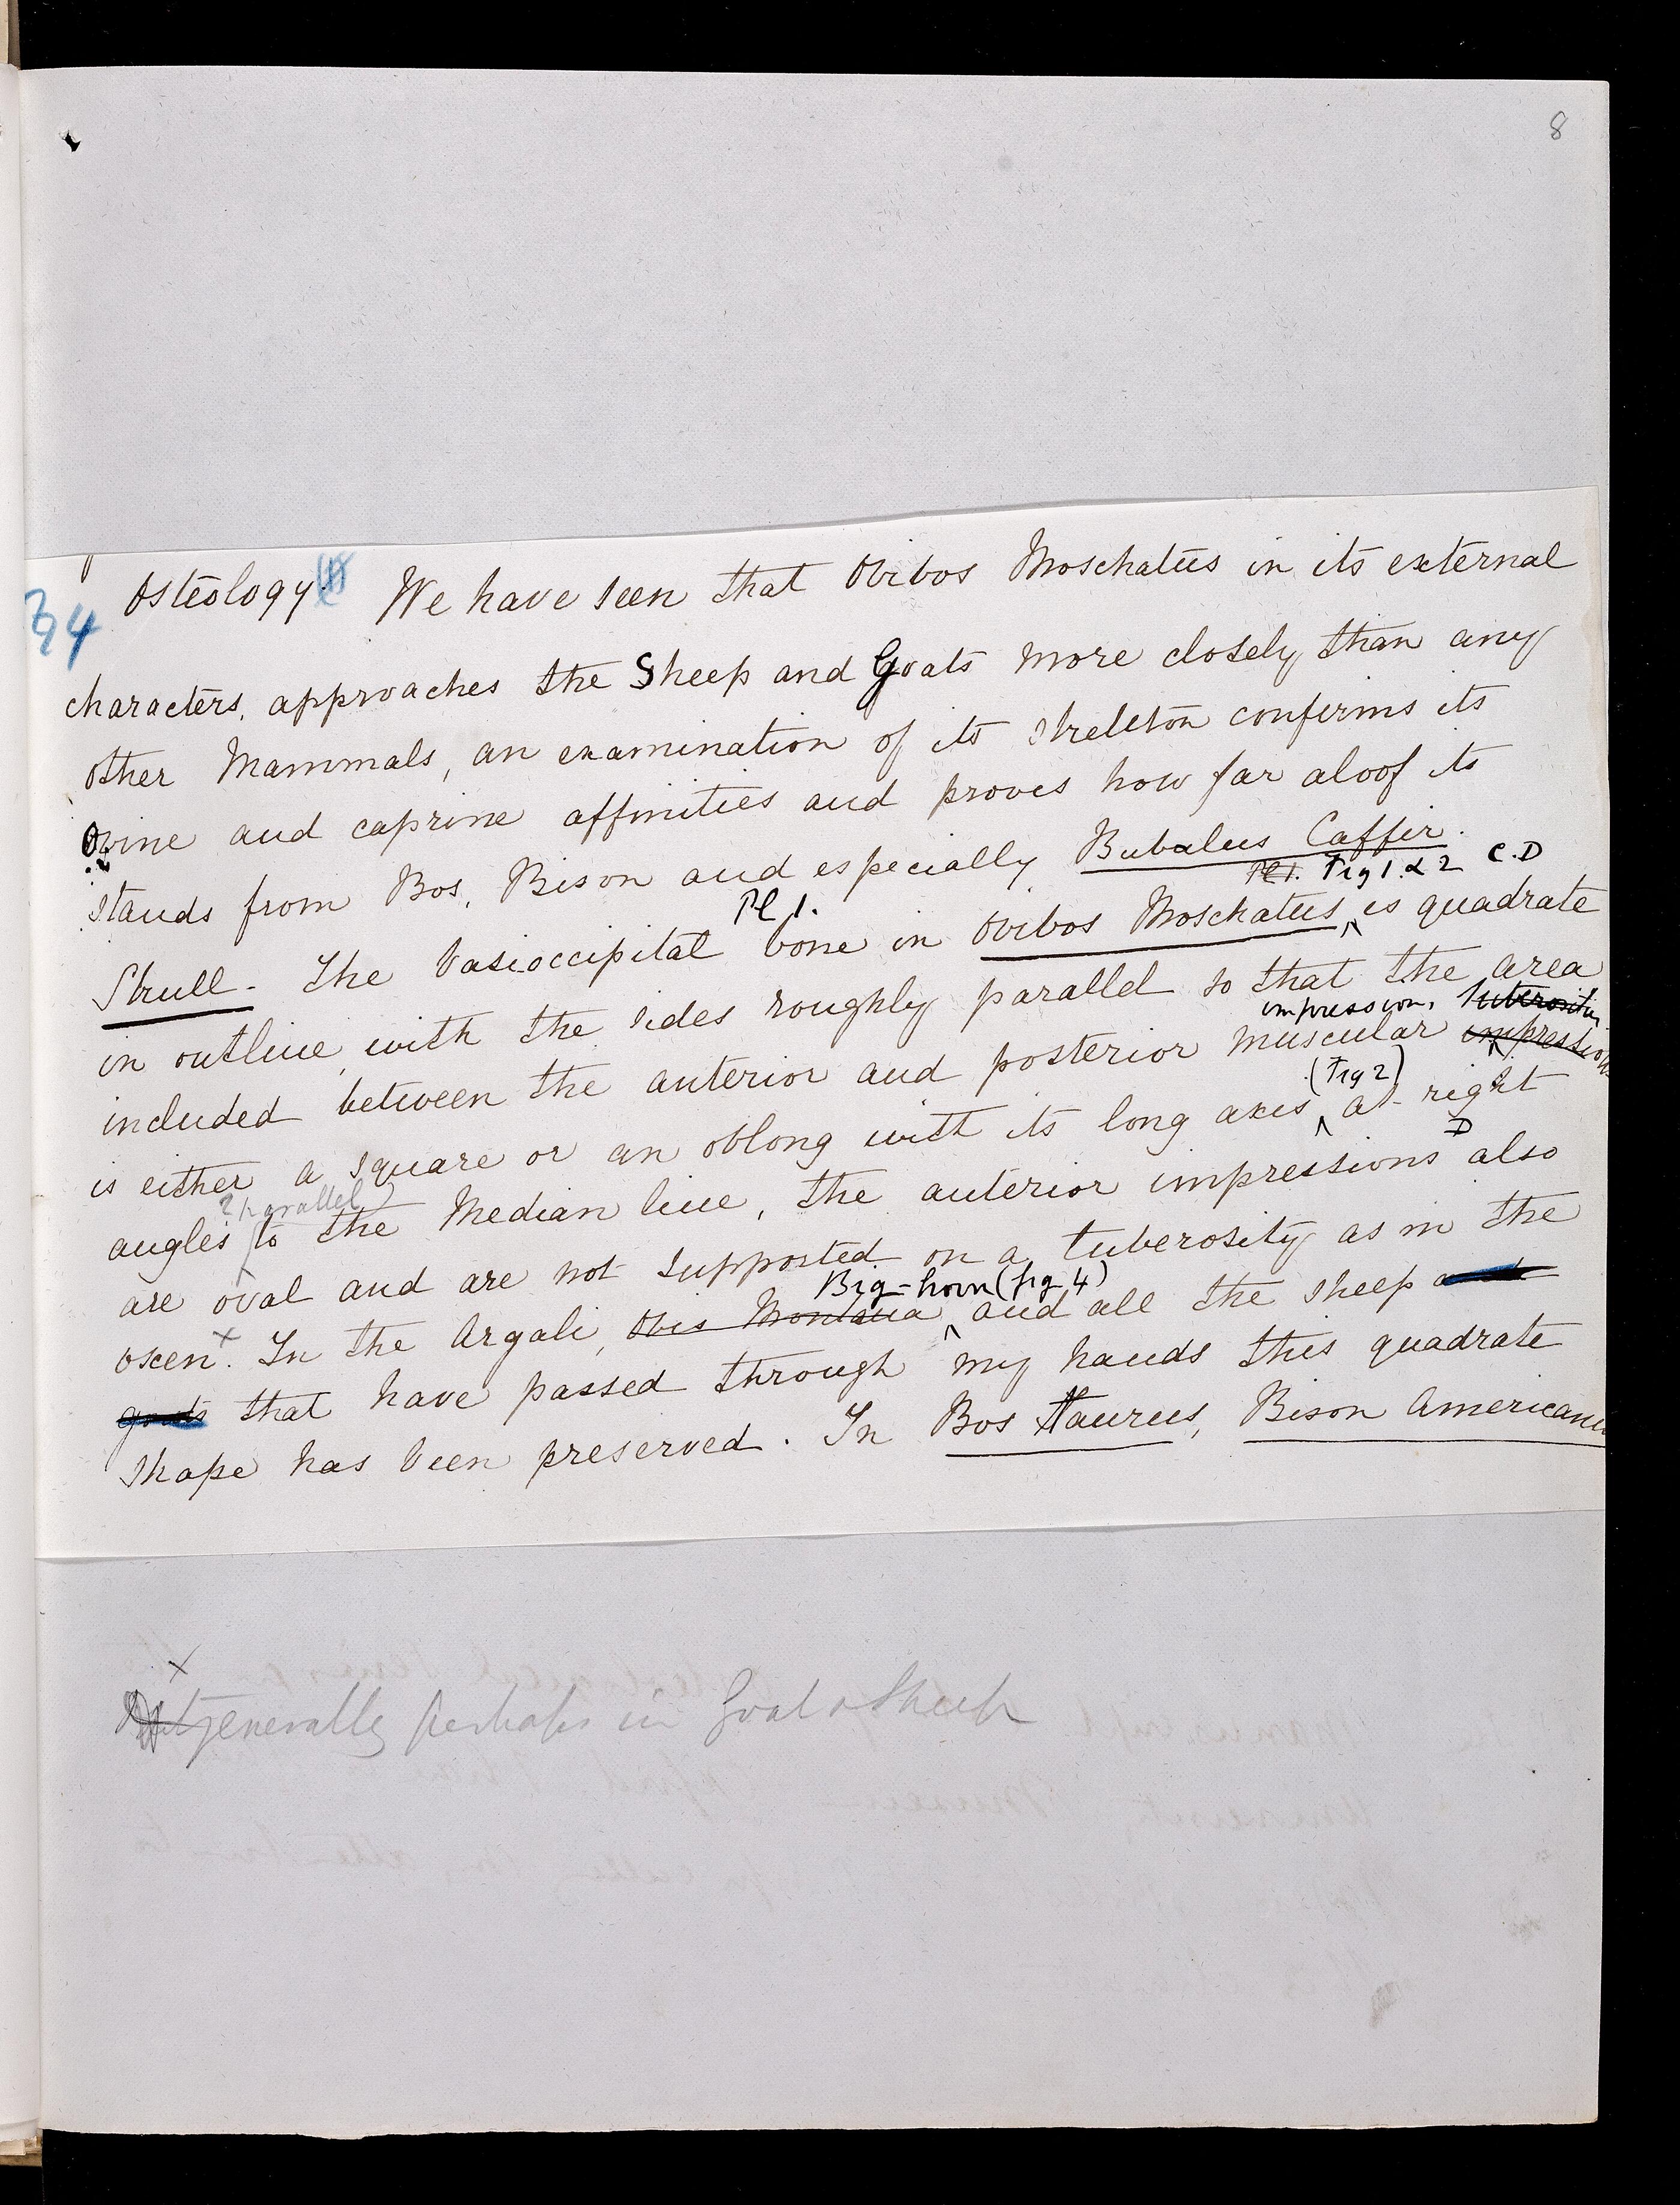 8
Osteology We have seen that Ovibos Moschatus in its external
34
characters, approaches the Sheep and Goats more closely than any
other Mammals, an examination of its skeleton confirms its
Ovine and caprine affinities and proves how far aloof it
stands from Bos, Bison and especially Bubalus Caffer.
Pl 1. Pl 1. Fig 1. & 2 C.D
Skull - The basioccipital bone in Ovibos Moschatus is quadrate
in outline, with the sides roughly parallel so that the area
impression, tuberosity
included between the anterior and posterior muscular impressions
(Fig 2)
is either a square or an oblong with its long axis at right
? parallel D
angles to the Median line, the anterior impressions also
are oval and are not supported on a tuberosity as in the
Big-horn (fig 4)
oxen. x In the Argali, Ovis Montana and all the sheep and
goats that have passed through my hands this quadrate
shape has been preserved. In Bos Taurus, Bison Americanu
x
generally perhaps in Goat & Sheep